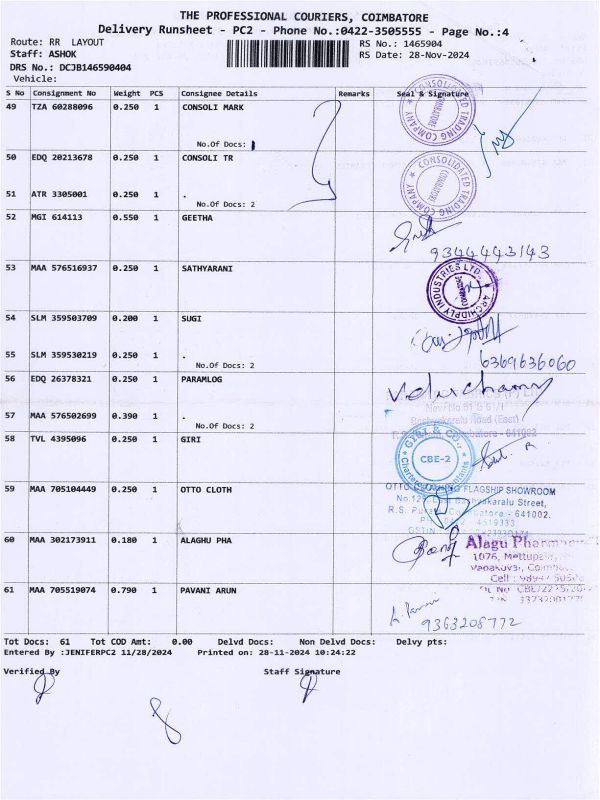 THE PROFESSIONAL COURIERS, COIMBATORE
Delivery Runsheet - PC2 - Phone No.:0422-3505555 - Page No.:4
Route: RR LAYOUT
RS No.: 1465904
Staff: ASHOK
RS Date: 28-Nov-2024
DRS No.: DCJB146590404
Vehicle:
S No Consignment No Weight PCS Consignee Details Remarks Seal & Signature
49 TZA 60288096 0.250 1 CONSOLI MARK
No.Of Docs:
CONSOLIDATED TRADING COMPANY
COIMBATORE
50 EDQ 20213678 0.250 1 CONSOLI TR
CONSOLIDATED TRADING COMPANY
51 ATR 3305001 0.250 1 .
No.Of Docs: 2
52 MGI 614113 0.550 1 GEETHA
9344443143
53 MAA 576516937 0.250 1 SATHYARANI
ARCHIDPLY INDUSTRIES LTD.
54 SLM 359503709 0.200 1 SUGI
55 SLM 359530219 0.250 1 .
No.Of Docs: 2
6369636060
56 EDQ 26378321 0.250 1 PARAMLOG
57 MAA 576502699 0.390 1 .
No.Of Docs: 2
Road (East)
Coimbatore - 641002
58 TVL 4395096 0.250 1 GIRI
GIRI & CO.,
Chartered Accountants
CBE-2
59 MAA 705104449 0.250 1 OTTO CLOTH
OTTO CLOTHING FLAGSHIP SHOWROOM
Street,
R.S. Puram, Coimbatore - 641002.
4519333
60 MAA 302173911 0.180 1 ALAGHU PHA
Alagu Pharma
1076, Mettupalayam
61 MAA 705519074 0.790 1 PAVANI ARUN
9363208772
Tot Docs: 61 Tot COD Amt: 0.00 Delvd Docs: Non Delvd Docs: Delvy pts:
Entered By :JENIFERPC2 11/28/2024 Printed on: 28-11-2024 10:24:22
Verified By Staff Signature